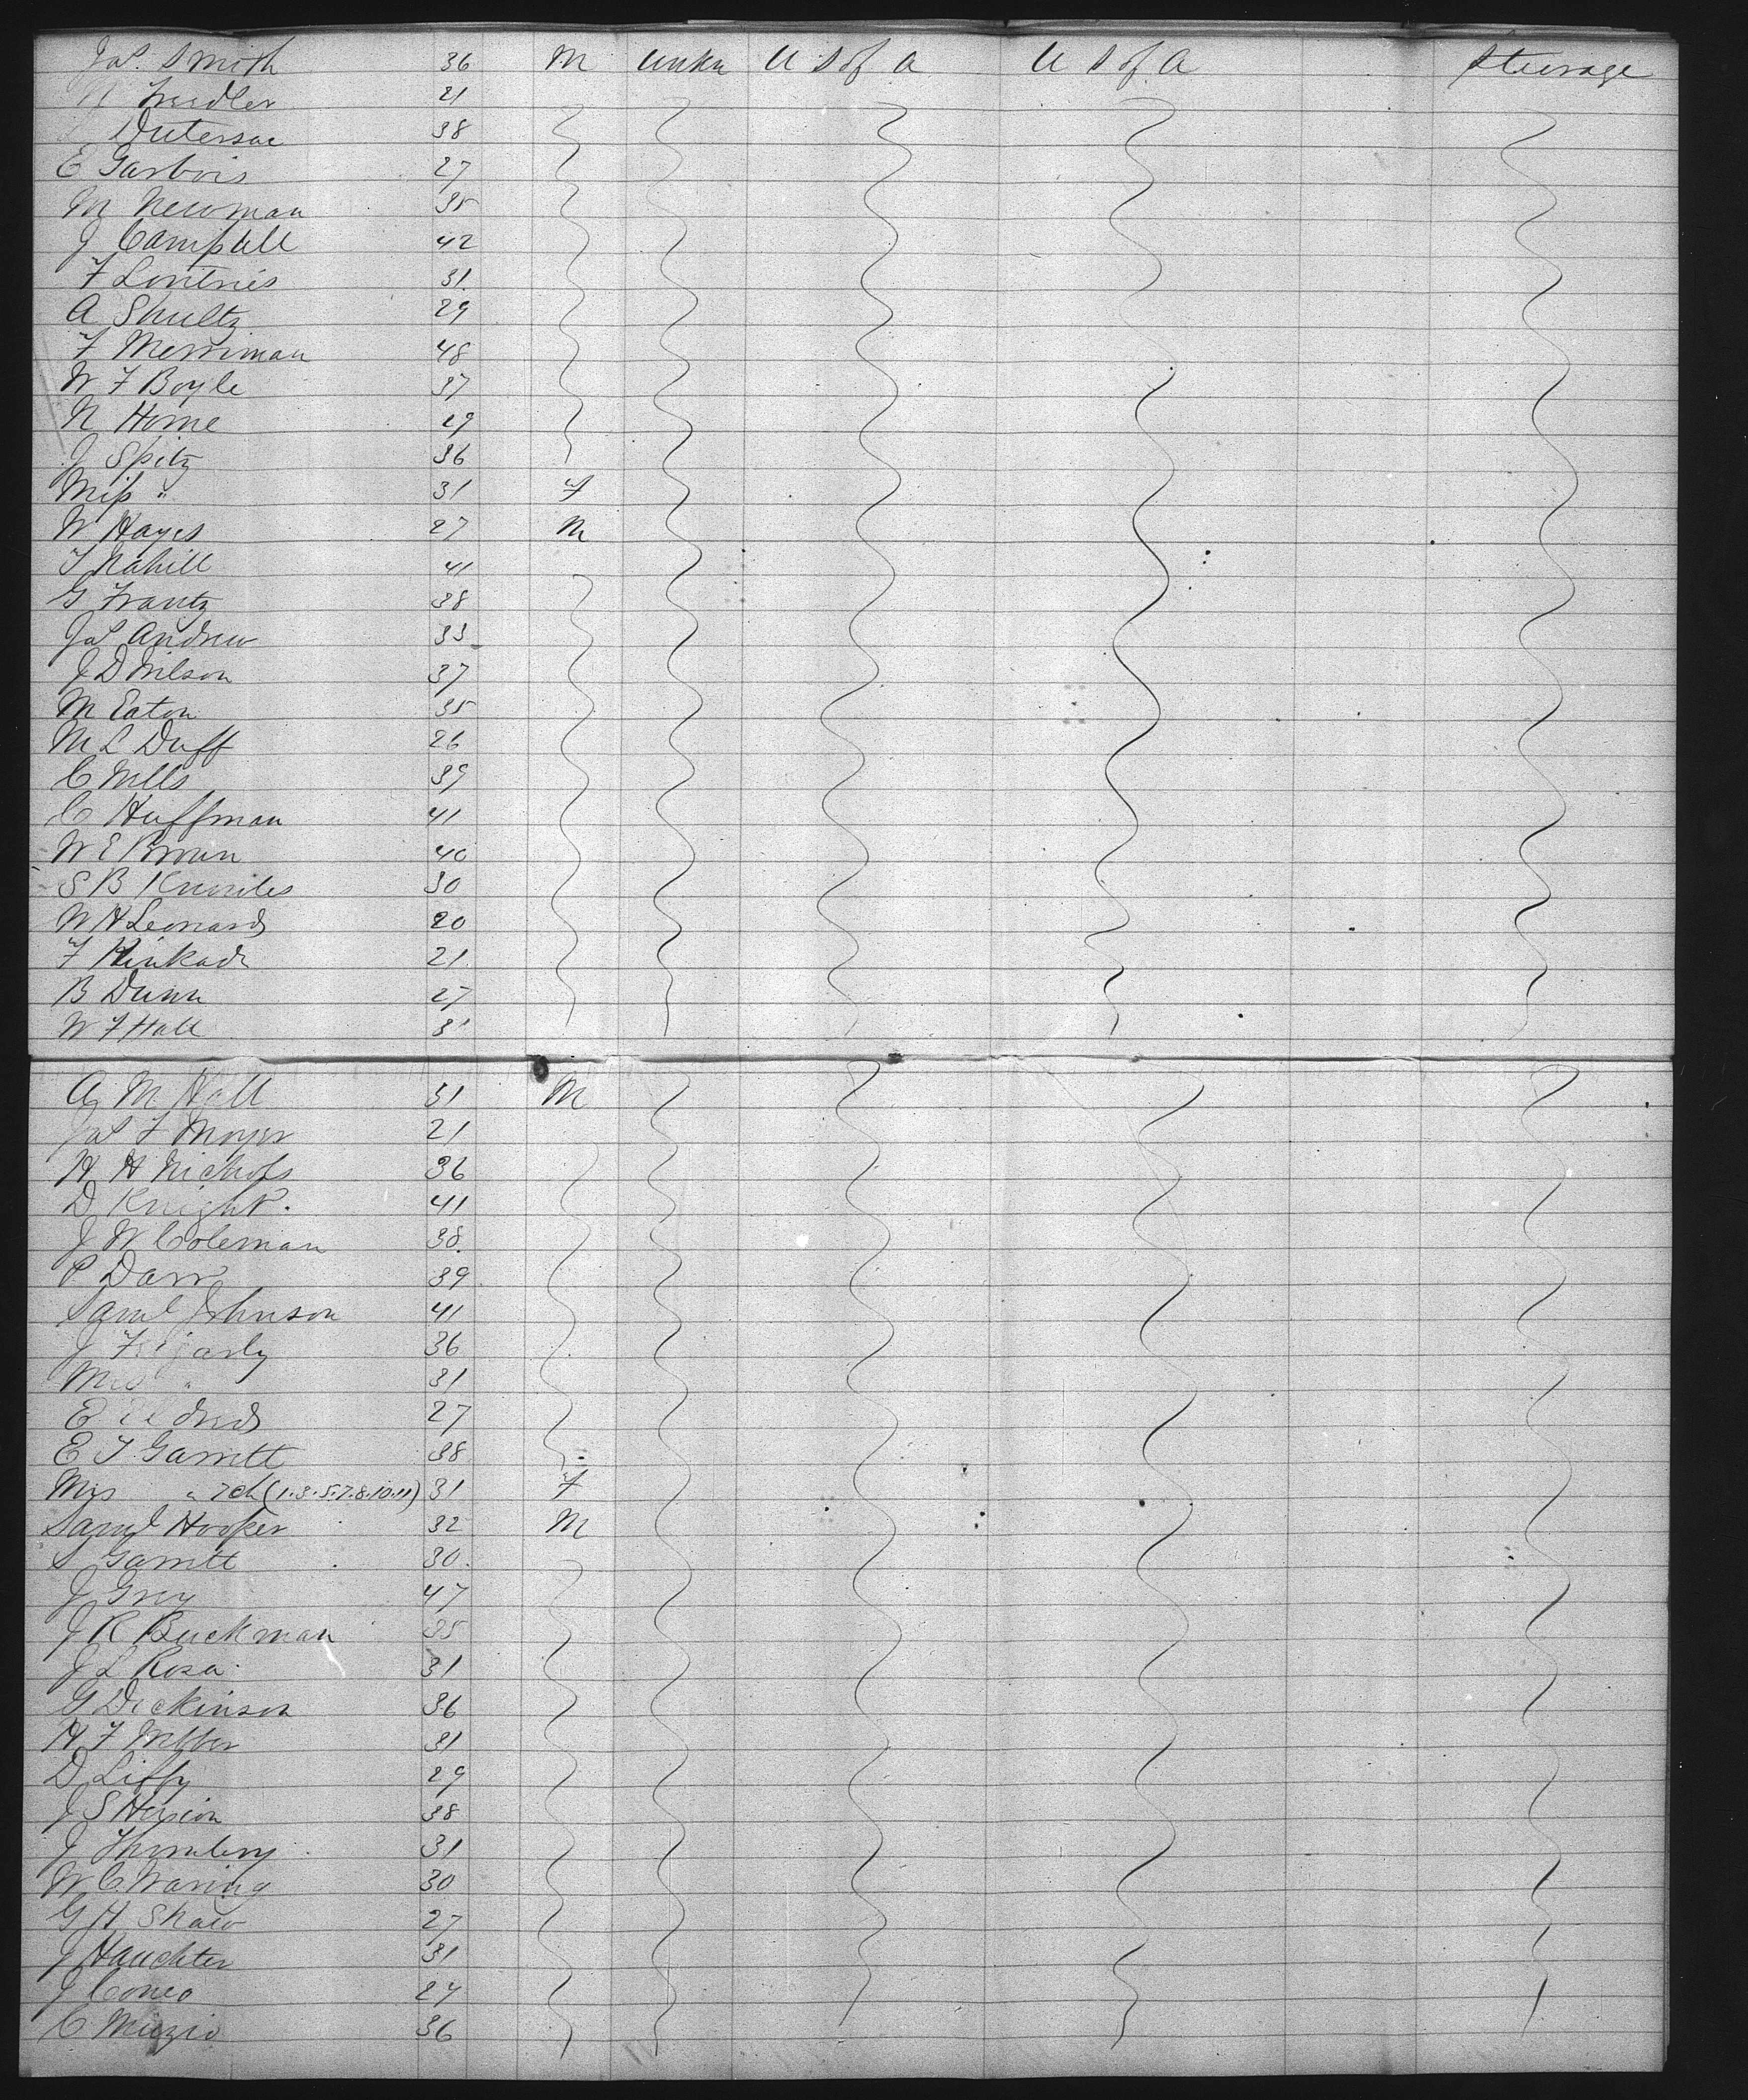 Jas. Smith 36 M Unkn U S of A U S of A Steerage
21
38
E 27
M Newman 35
J Campbell 42
F 31.
A Shultz 29
F Merriman 48
W F Boyle 37
N Horne 29
J Spitz 36
Miss " 31 F
W Hayes 27 M
T Kahill 41
G Frantz 38
Jas Andrew 33
J D Wilson 37
M Eaton 35
M L Duff 26
C Wells 39
C Huffman 41
W E Brown 40
S B Knowles 30
W H Leonard 20
F Kinkade 21
B Dunn 27
W F Hall 31
A M Hall 31 M
Jas F Moyer 21
H H Nichols 36
D Knight. 41
J W Coleman 38.
P Darr 39
Saml Johnson 41
J 36
Mrs " 31
E 27
E T Garrett 38
Mrs " 7 ch (1.3.5.7.8.10.11) 31 F
Saml Hooker 32 M
S Garrett 30.
J Grey 47
J R Buckman 35
J L Rosa 31
G Dickinson 36
H F Webber 31
D Liffy 29
J S 38
J Thornbery 31
W C. Waring 30
G H Shaw 27
J Hauchter 31
J 27
C Muzio 36